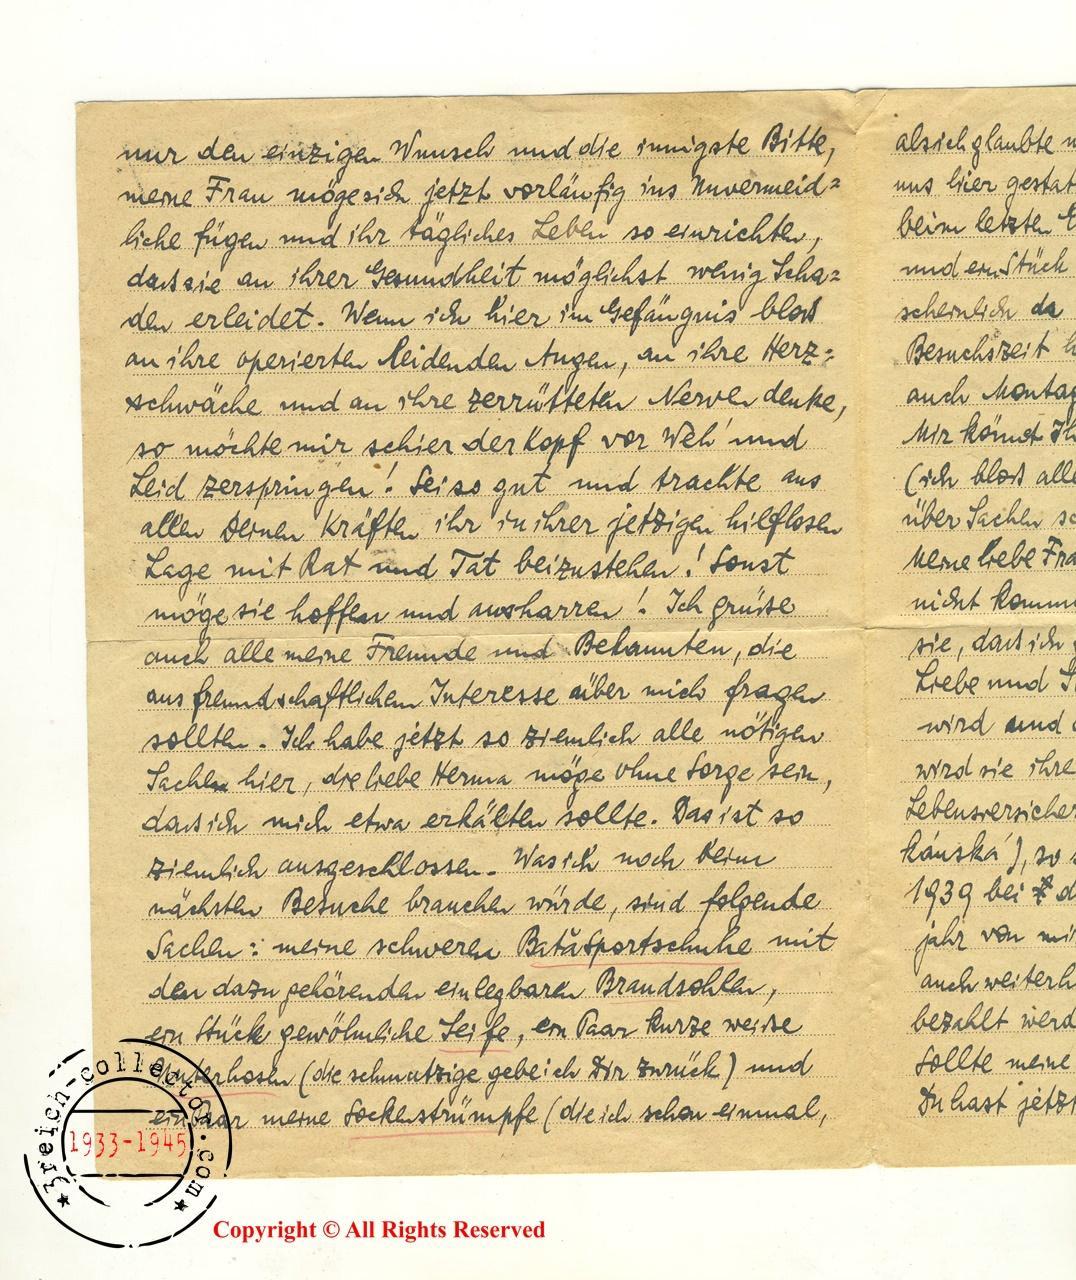 nur den einzigen Wunsch und die innigste Bitte,
meine Frau möge sich jetzt vorläufig ins Unvermeid=
liche fügen und ihr tägliches Leben so einrichten,
dass sie an ihrer Gesundheit möglichst wenig Scha=
den erleidet. Wenn ich hier im Gefängnis bloss
an ihre operierten leidenden Augen, an ihre Herz=
schwäche und an ihre zerrütteten Nerven denke,
so möchte mir schier der Kopf vor Weh' und
Leid zerspringen! Sei so gut und trachte aus
allen Deinen Kräften ihr in ihrer jetzigen hilflosen
Lage mit Rat und Tat beizustehen! Sonst
möge sie hoffen und ausharren! Ich grüsse
auch alle meine Freunde und Bekannten, die
aus freundschaftlichem Interesse über mich fragen
sollten. Ich habe jetzt so ziemlich alle nötigen
Sachen hier, die liebe Herma möge ohne Sorge sein,
dass ich mich etwa erkälten sollte. Das ist so
ziemlich ausgeschlossen. Was ich noch beim
nächsten Besuche brauchen würde, sind folgende
Sachen: meine schweren Bataşportschuhe mit
den dazu gehörenden einlegbaren Brandsohlen,
ein Stück gewöhnliche Seife, ein Paar kurze weisse
Unterhosen (die schmutzige gebe ich Dir zurück) und
ein Paar meine Sockenstrümpfe (die ich schon einmal,
als ich glaubte
uns hier gestat
beim letzten
und ein Stück
scheinlich da
Besuchszeit
auch Montag
Mir könnt Ih
(ich bloss alle
über Sachen
Meine liebe Fra
nicht komm
sie, dass ich
Liebe und
wird und
wird sie ihre
Lebensversicher
kánská), so
1939 bei d
jahr von mi
auch weiterh
bezahlt werd
Sollte meine
Du hast jetzt
3reich-collector.com
1933-1945
Copyright © All Rights Reserved